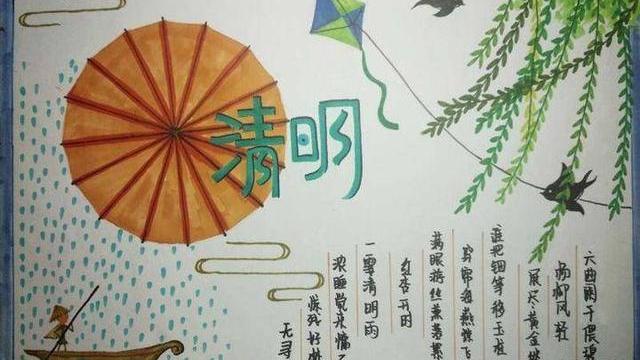 清明
六曲阑干偎碧
杨柳风轻
展尽黄金
谁把钿筝移玉柱
穿帘海燕惊飞
满眼游丝兼落絮
红杏开时
一霎清明雨
浓睡觉来慵不
惊残好
无寻